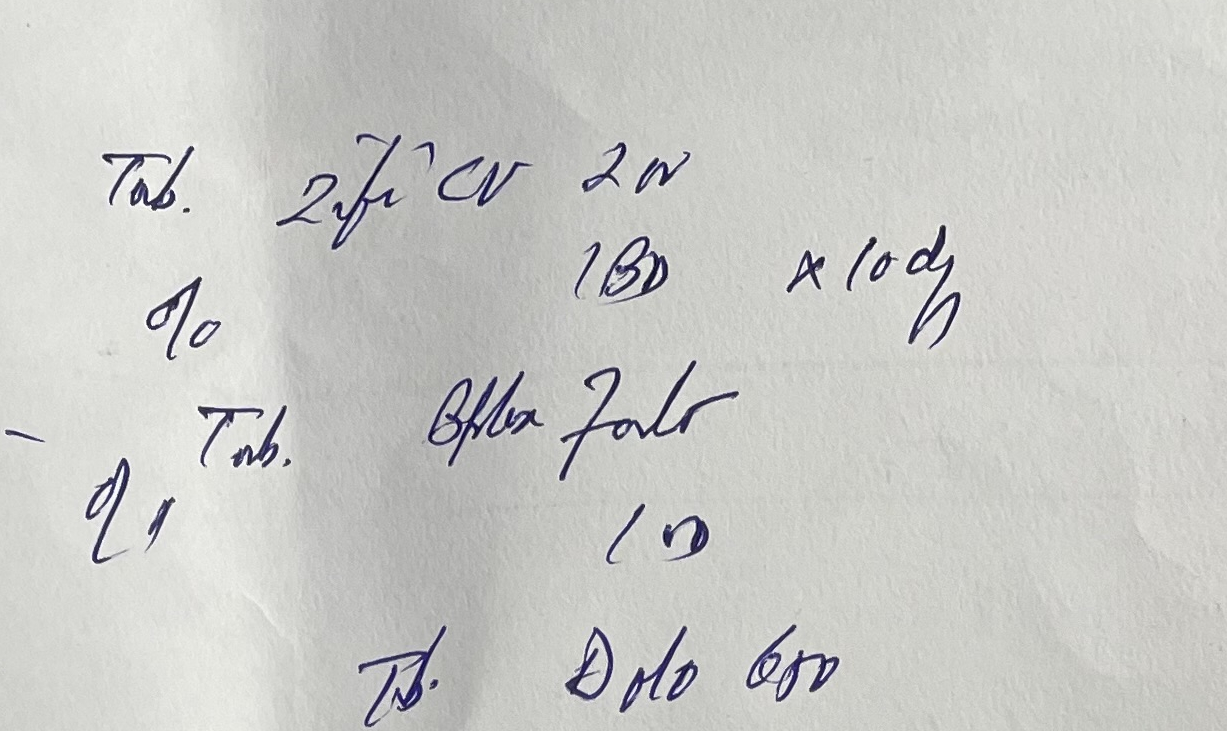 Tab. Zifi CV 200
1 BD x 10 dys
Tab. Bplex Forte
1 OD
Tb. Dolo 650